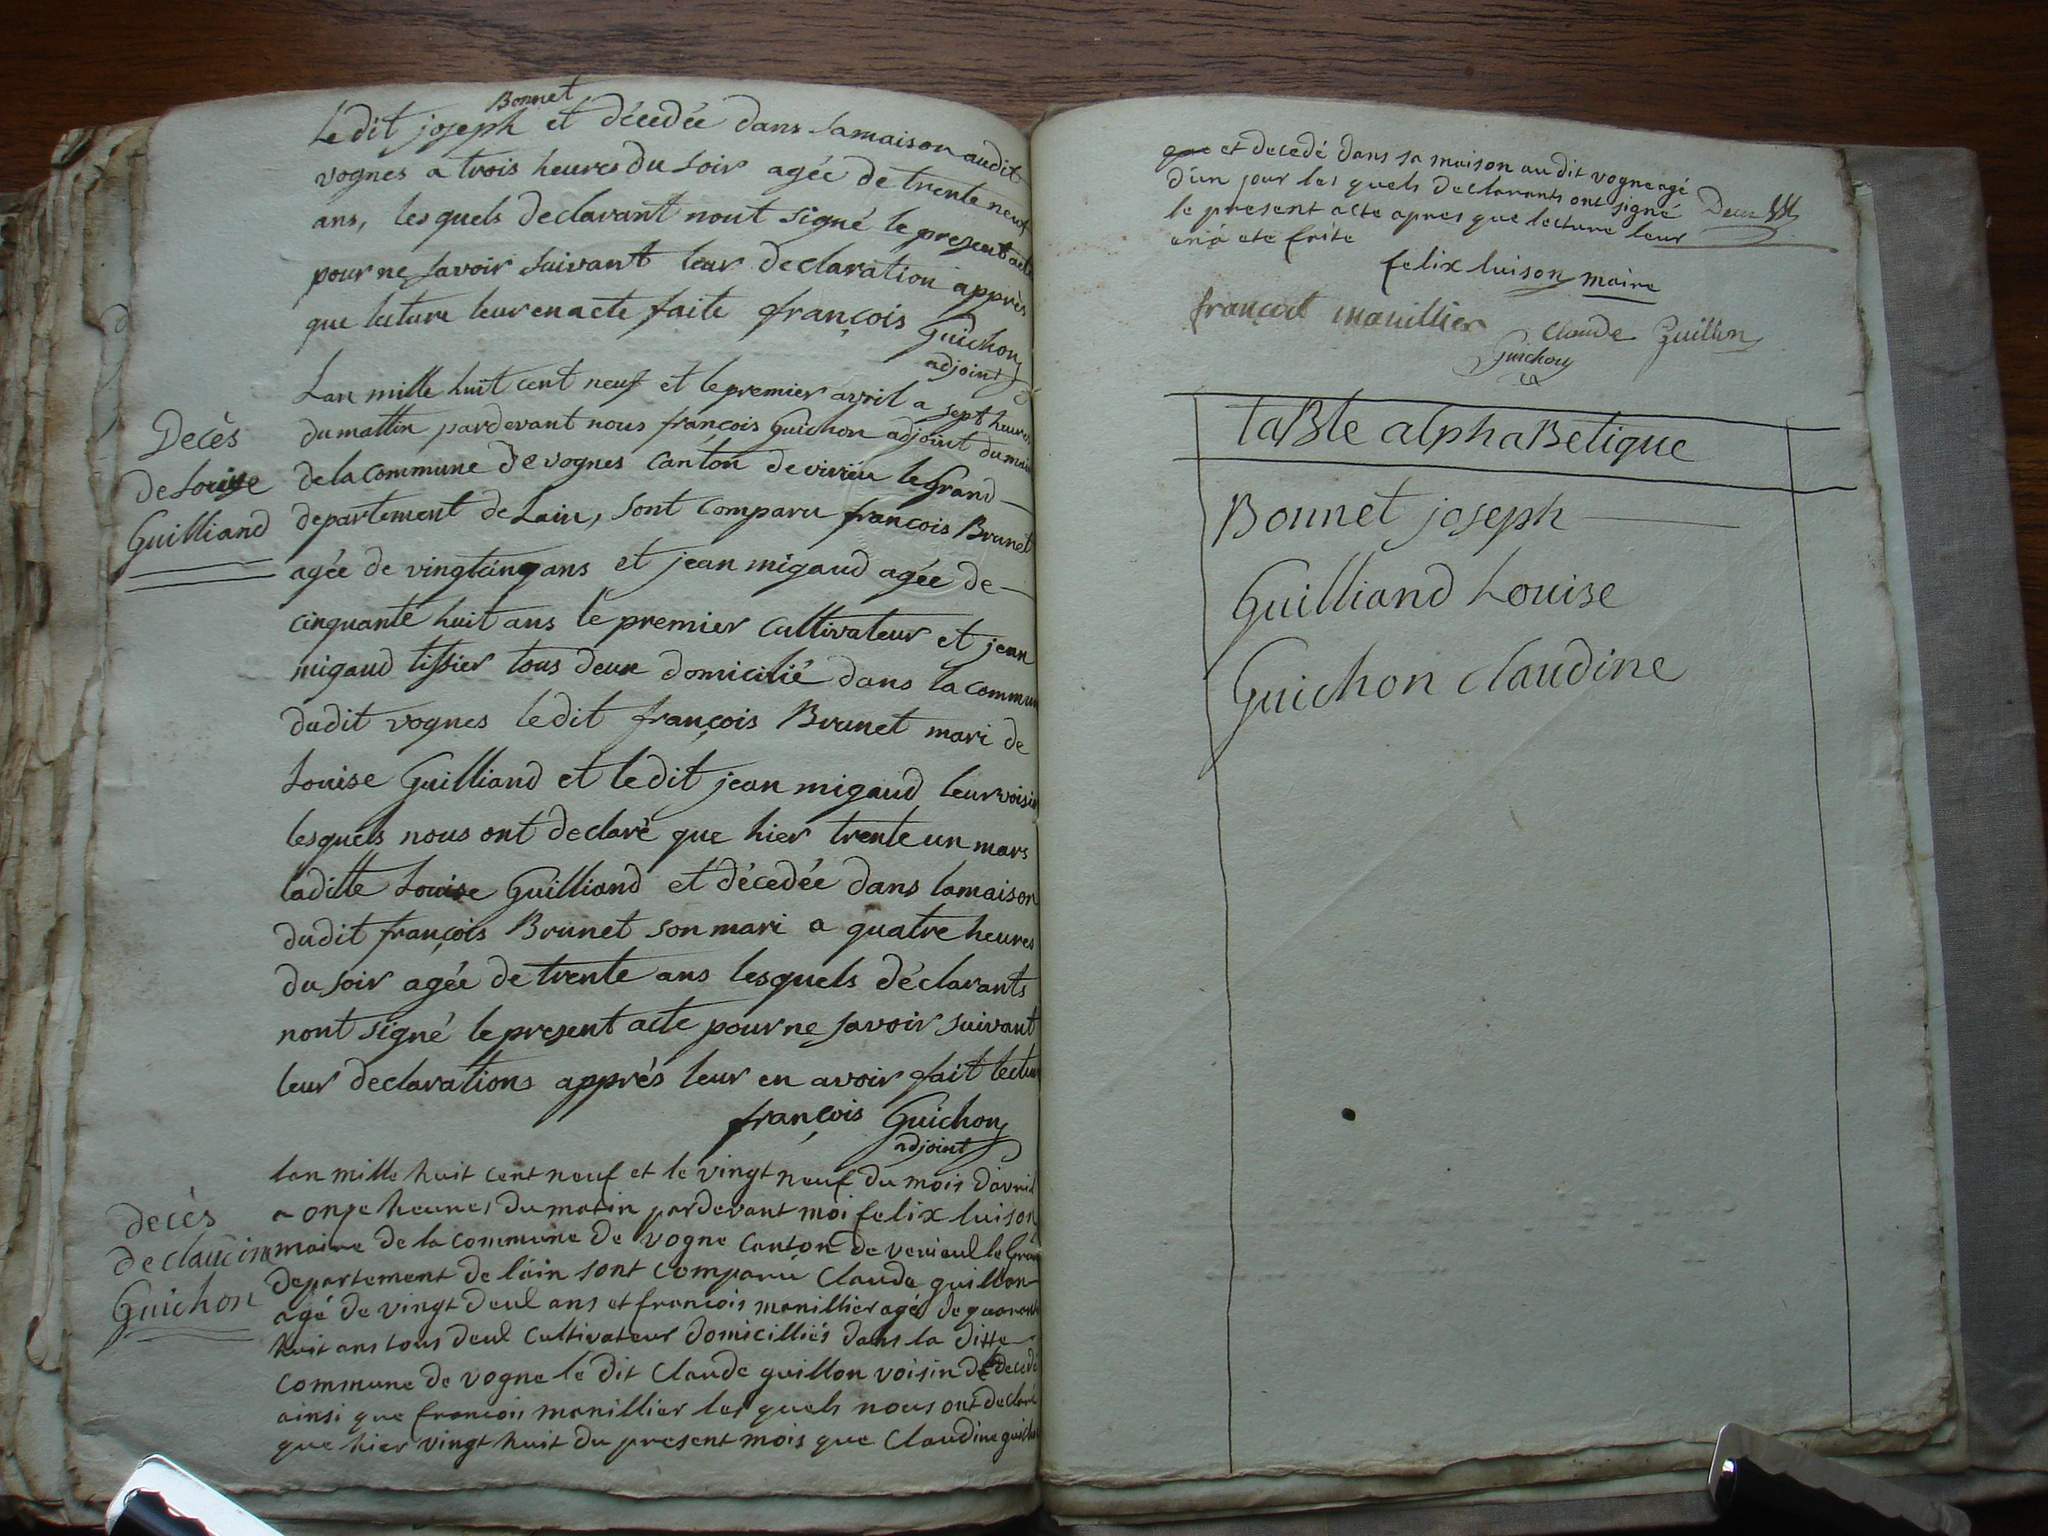 Bonnet
Ledit joseph et décedée dans sa maison audit
vognes a trois heures du soir agée de trente neuf
ans, lesquels declarant nont signé le present acte
pour ne savoir suivant leur declaration apprès
que lecture leur en acte faite françois Guichon
adjoint
Lan mille huit cent neuf et le premier avril a sept heures
du mattin pardevant nous françois Guichon adjoint du maire
Decès
de Louise
Guilliand
de la commune de vognes canton de virieu le grand
departement de Lain, sont comparu françois Brunet
agée de vingtcinq ans et jean migaud agée de
cinquante huit ans le premier cultivateur et jean
migaud tissier tous deux domicilié dans la commun
dudit vognes ledit françois Brunet mari de
Louise Guilliand et ledit jean migaud leur voisin
lesquels nous ont declaré que hier trente un mars
laditte Louise Guilliand et décedée dans lamaison
dudit françois Brunet son mari a quatre heures
du soir agée de trente ans lesquels déclarants
nont signé le present acte pour ne savoir suivant
leur declarations apprés leur en avoir fait lectur
françois Guichon
adjoint
lan mille huit cent neuf et le vingt neuf du mois davril
a onze heures du matin pardevant moi felix luison
decès
de claudine
Guichon
maire de la commune de vogne canton de verieul le Gran
departement de lain sont comparu Claude guillon
agé de vingt deul ans et francois manillier agé de quarant
huit ans tous deul cultivateur domicilliés dans la ditte
commune de vogne le dit Claude guillon voisin de decedé
ainsi que francois manillier les quels nous ont declaré
que hier vingt huit du present mois que Claudine guichon
que et decedé dans sa maison au dit vogne agé
d'un jour les quels declarants ont signé
le present acte apres que lecture leur
en a ete faite
felix luison maire
françoit manillier claude Guillon
Guichon
taBle alphaBetique
Bonnet joseph
Guilliand Louise
Guichon claudine